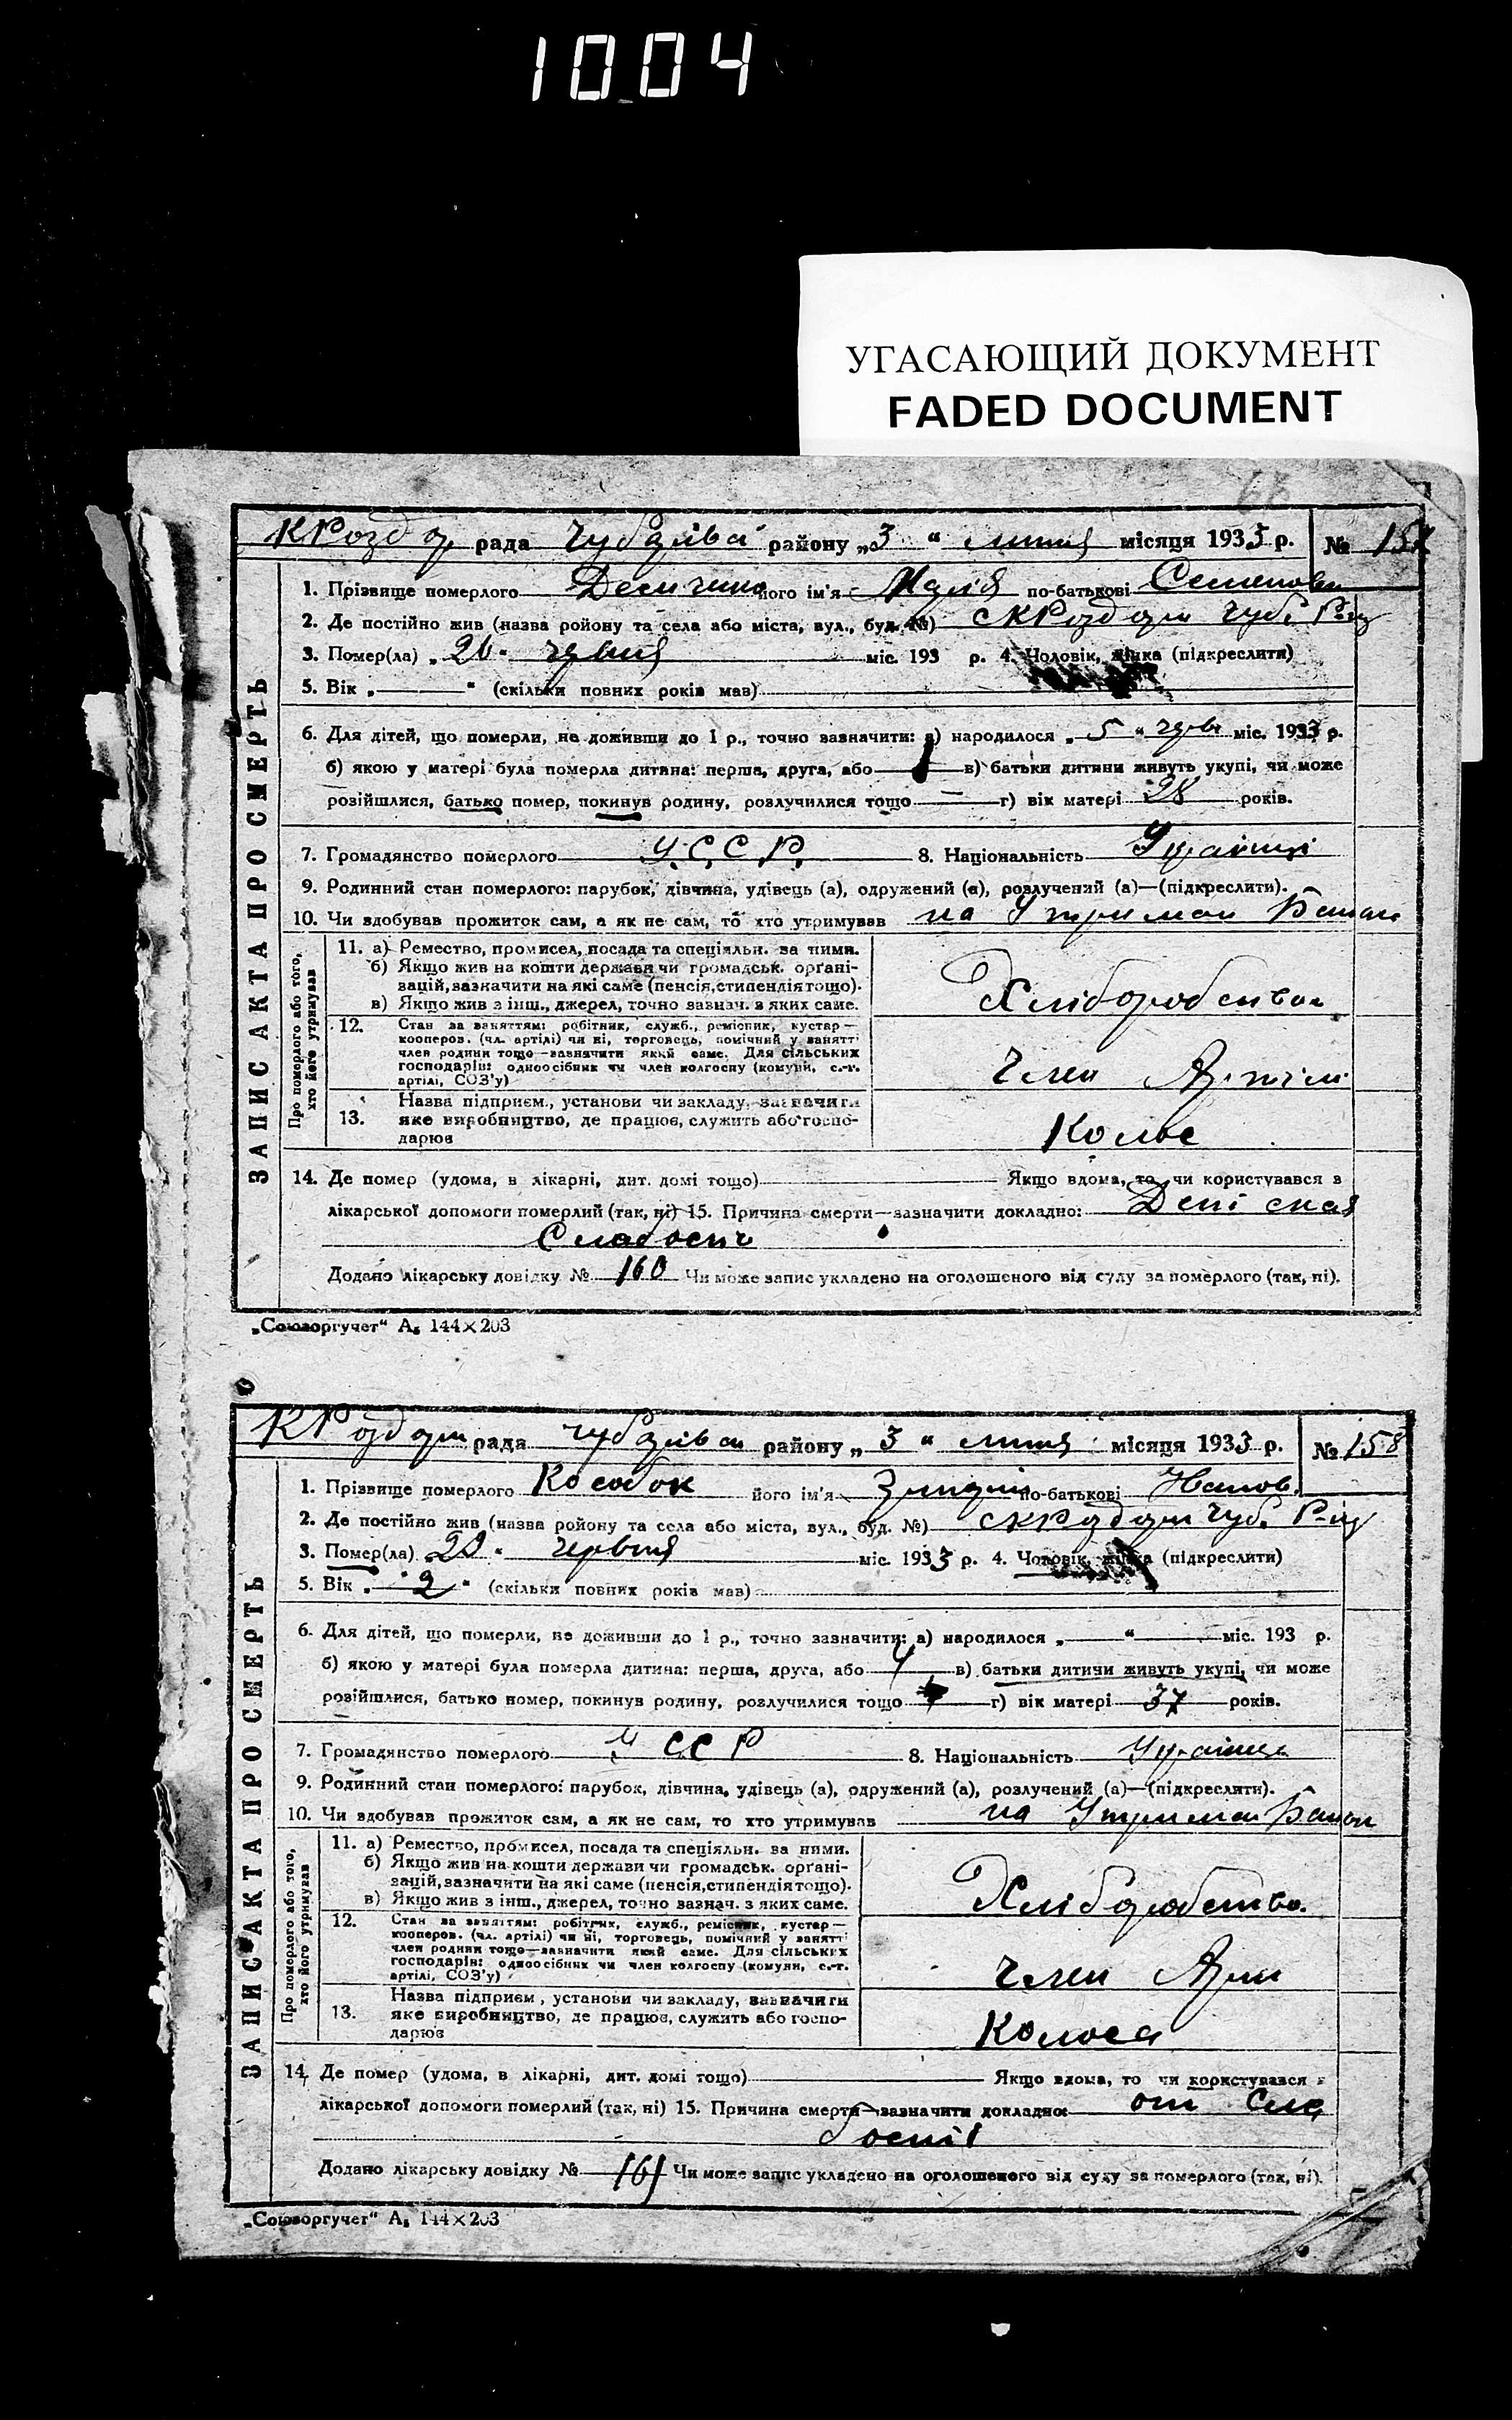 1004
УГАСАЮЩИЙ ДОКУМЕНТ
FADED DOCUMENT
рада району „3“ липня місяця 1933 р. №
1. Прізвище померлого його ім'я Марія по-батькові
2. Де постійно жив (назва ройону та села або міста, вул., буд. №)
3. Помер(ла) міс. 193 р. 4. Чоловік, жінка (підкреслити)
5. Вік „ “ (скільки повних років мав)
6. Для дітей, що померли, не доживши до 1 р., точно зазначити: а) народилося „5“ черв міс. 1933 р.
б) якою у матері була померла дитина: перша, друга, або в) батьки дитини живуть укупі, чи може
розійшлися, батько помер, покинув родину, розлучилися тощо — г) вік матері 28 років.
7. Громадянство померлого У.С.С.Р. 8. Національність
9. Родинний стан померлого: парубок, дівчина, удівець (а), одружений (а), розлучений (а)—(підкреслити).
10. Чи здобував прожиток сам, а як не сам, то хто утримував на Утриман
ЗАПИС АКТА ПРО СМЕРТЬ
Про померлого або того, хто його утримував
11. а) Ремество, промисел, посада та спеціяльн. за ними.
б) Якщо жив на кошти держави чи громадськ. орґані-
зацій, зазначити на які саме (пенсія, стипендія тощо).
в) Якщо жив з інш., джерел, точно зазнач. з яких саме.
Хліборобство
12. Стан за заняттям: робітник, служб., ремісник, кустар—
кооперов. (чл. артілі) чи ні, торговець, помічний у занятті
член родини тощо—зазначити який саме. Для сільських
господарів: одноосібник чи член колгоспу (комуни, с.-г.
артілі, СОЗ'у)
Член Артілі
Назва підприєм., установи чи закладу, зазначити
13. яке виробництво, де працює, служить або госпо-
дарює
Колос
14. Де помер (удома, в лікарні, дит. домі тощо) Якщо вдома, то чи користувався в
лікарської допомоги померлий (так, ні) 15. Причина смерти—зазначити докладно:
Додано лікарську довідку № 160 Чи може запис укладено на оголошеного від суду за померлого (так, ні).
„Союзоргучет“ А₅ 144×203
рада району „3“ липня місяця 1933 р. № 158
1. Прізвище померлого Кособок його ім'я по-батькові
2. Де постійно жив (назва ройону та села або міста, вул., буд. №)
3. Помер(ла) червня міс. 1933 р. 4. Чоловік, жінка (підкреслити)
5. Вік „2“ (скільки повних років мав)
6. Для дітей, що померли, не доживши до 1 р., точно зазначити: а) народилося „ “ міс. 193 р.
б) якою у матері була померла дитина: перша, друга, або 4 в) батьки дитини живуть укупі, чи може
розійшлися, батько помер, покинув родину, розлучилися тощо г) вік матері 37 років.
7. Громадянство померлого У ССР 8. Національність
9. Родинний стан померлого: парубок, дівчина, удівець (а), одружений (а), розлучений (а)—(підкреслити).
10. Чи здобував прожиток сам, а як не сам, то хто утримував на Утриман
ЗАПИС АКТА ПРО СМЕРТЬ
Про померлого або того, хто його утримував
11. а) Ремество, промисел, посада та спеціяльн. за ними.
б) Якщо жив на кошти держави чи громадськ. орґані-
зацій, зазначити на які саме (пенсія, стипендія тощо).
в) Якщо жив з інш., джерел, точно зазнач. з яких саме.
Хліборобство.
12. Стан за заняттям: робітник, служб., ремісник, кустар—
кооперов. (чл. артілі) чи ні, торговець, помічний у занятті
член родини тощо—зазначити який саме. Для сільських
господарів: одноосібник чи член колгоспу (комуни, с.-г.
артілі, СОЗ'у)
Член
Назва підприєм., установи чи закладу, зазначити
13. яке виробництво, де працює, служить або госпо-
дарює
Колоса
14. Де помер (удома, в лікарні, дит. домі тощо) Якщо вдома, то чи користувався в
лікарської допомоги померлий (так, ні) 15. Причина смерти—зазначити докладно: от сла
бості
Додано лікарську довідку № 161 Чи може запис укладено на оголошеного від суду за померлого (так, ні).
„Союзоргучет“ А₅ 144×203